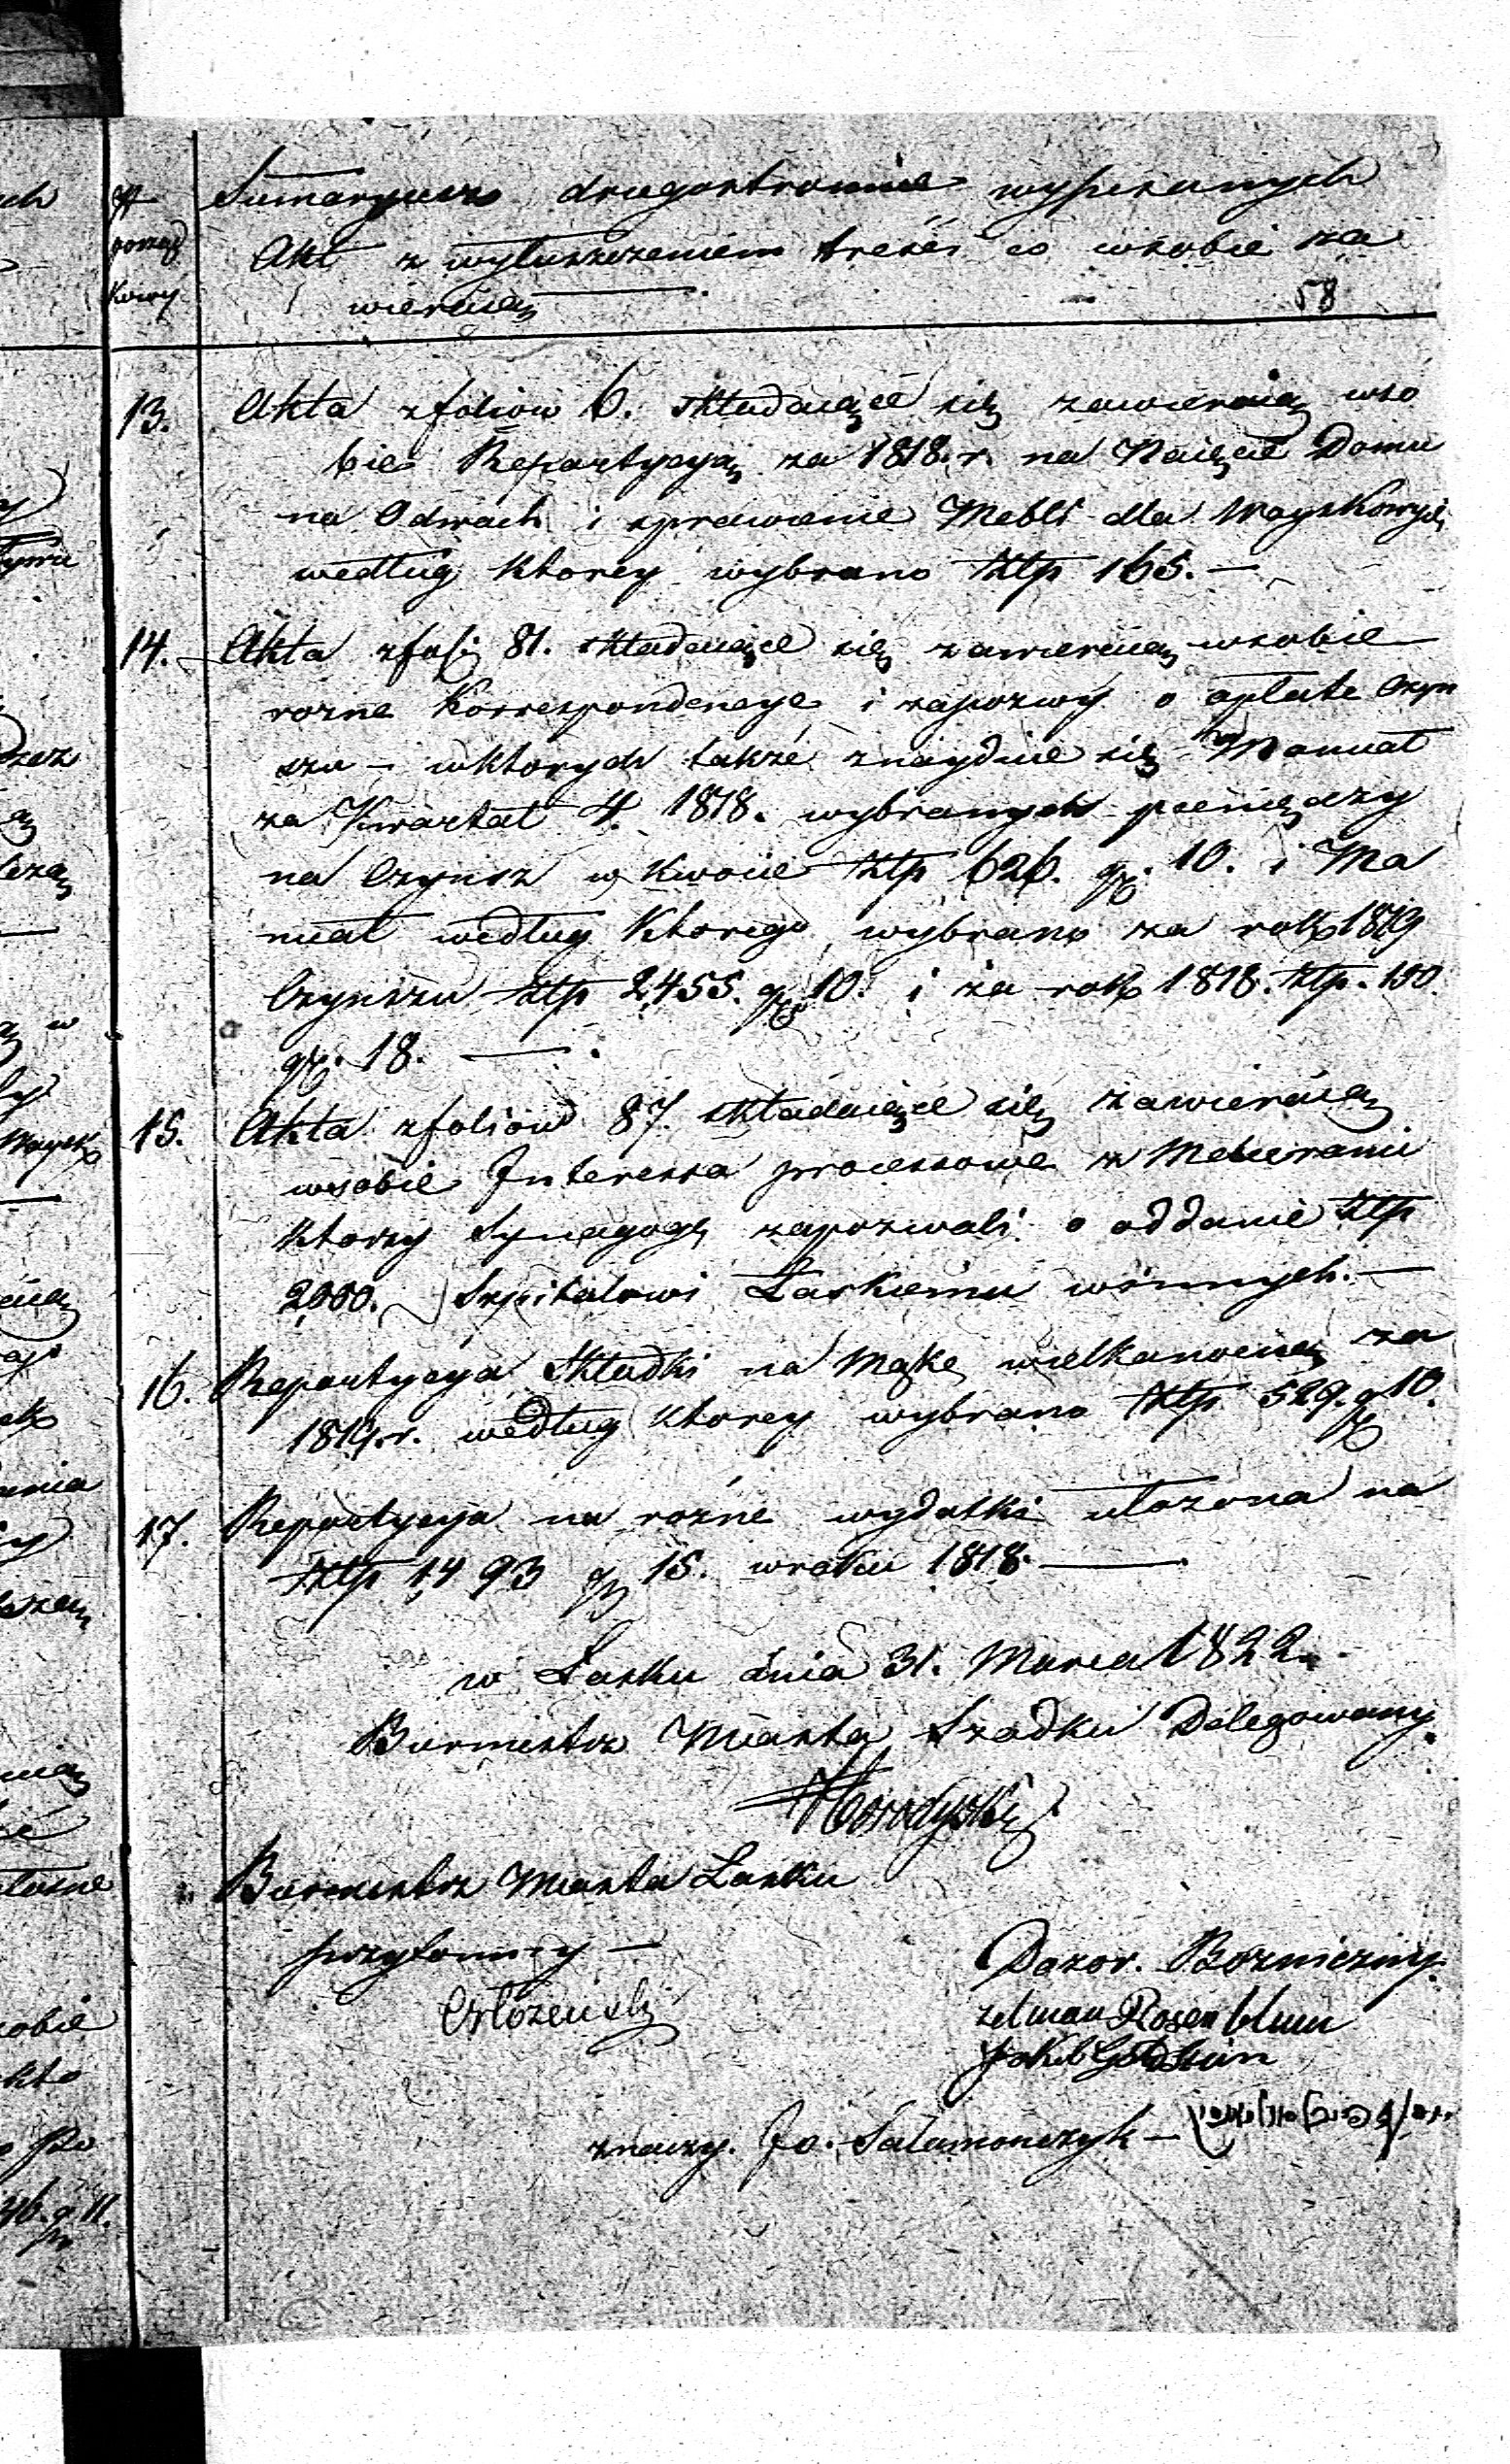 N
porząd
kowy
Sumaryusz drugostronnie wypisanych
Akt z wyłuszczeniem treści co wsobie za
wieraią
58
13. Akta zfoliow 6. składaiące się zawieraią wso
bie Repartycyą za 1818. r. na Naięcie Domu
na Odwach i sprawienie Mebli dla Woyskowych
według ktorey wybrano Złtp 165.—
14. Akta zfoli 81. składaiące się zawieraią wsobie
rozne Korrespondencye i zapozwy o opłate Czyn
szu – wktorych także znayduie się Manuał
za Kwartał 4. 1818. wybranych pieniędzy
na Czynsz w kwocie Złtp 626. gr. 10. i Ma
nuał według ktorego wybrano za rok 1819
Czynszu Złtp 2455. gr 10. i za rok 1818. Złtp. 190.
gr. 18. —.
15. Akta zfoliow 87. składaiące się zawieraią
wsobie Interessa processowe z
ktorzy Synagogę zapozwali o oddanie Złtp
2000. Szpitalowi Łaskiemu winnych.—
16. Repartycya Składki na Mąkę wielkanocną za
1819. r. według ktorey wybrano Złtp 529. gr 10.
17. Repartycya na rożne wydatki ułozona na
Złtp 1493 gr 15. wroku 1818.—
w Łasku dnia 31. Marca 1822.
Burmistrz Miasta Szadku Delegowany.
Burmistrz Miasta Łasku
przytomny —
Dozor. Bozniczny.
Zelman Rosenblum
Jakob Goldstein
znaczy. Jo. Salamonczyk —